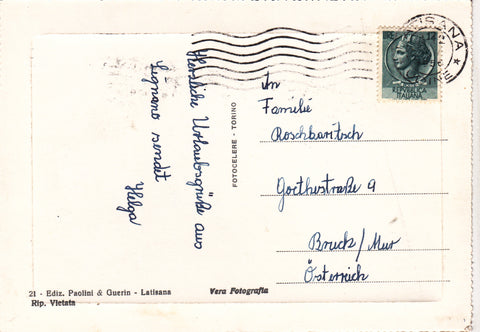 Herzliche Urlaubsgrüße aus
Lignano sendet
Helga
FOTOCELERE - TORINO
TISANA
12
REPVBBLICA
ITALIANA
An
Familie
Roschbaritsch
Goethestraße 9
Bruck/Mur
Österreich
21 - Ediz. Paolini & Guerin - Latisana
Rip. Vietata
Vera Fotografia